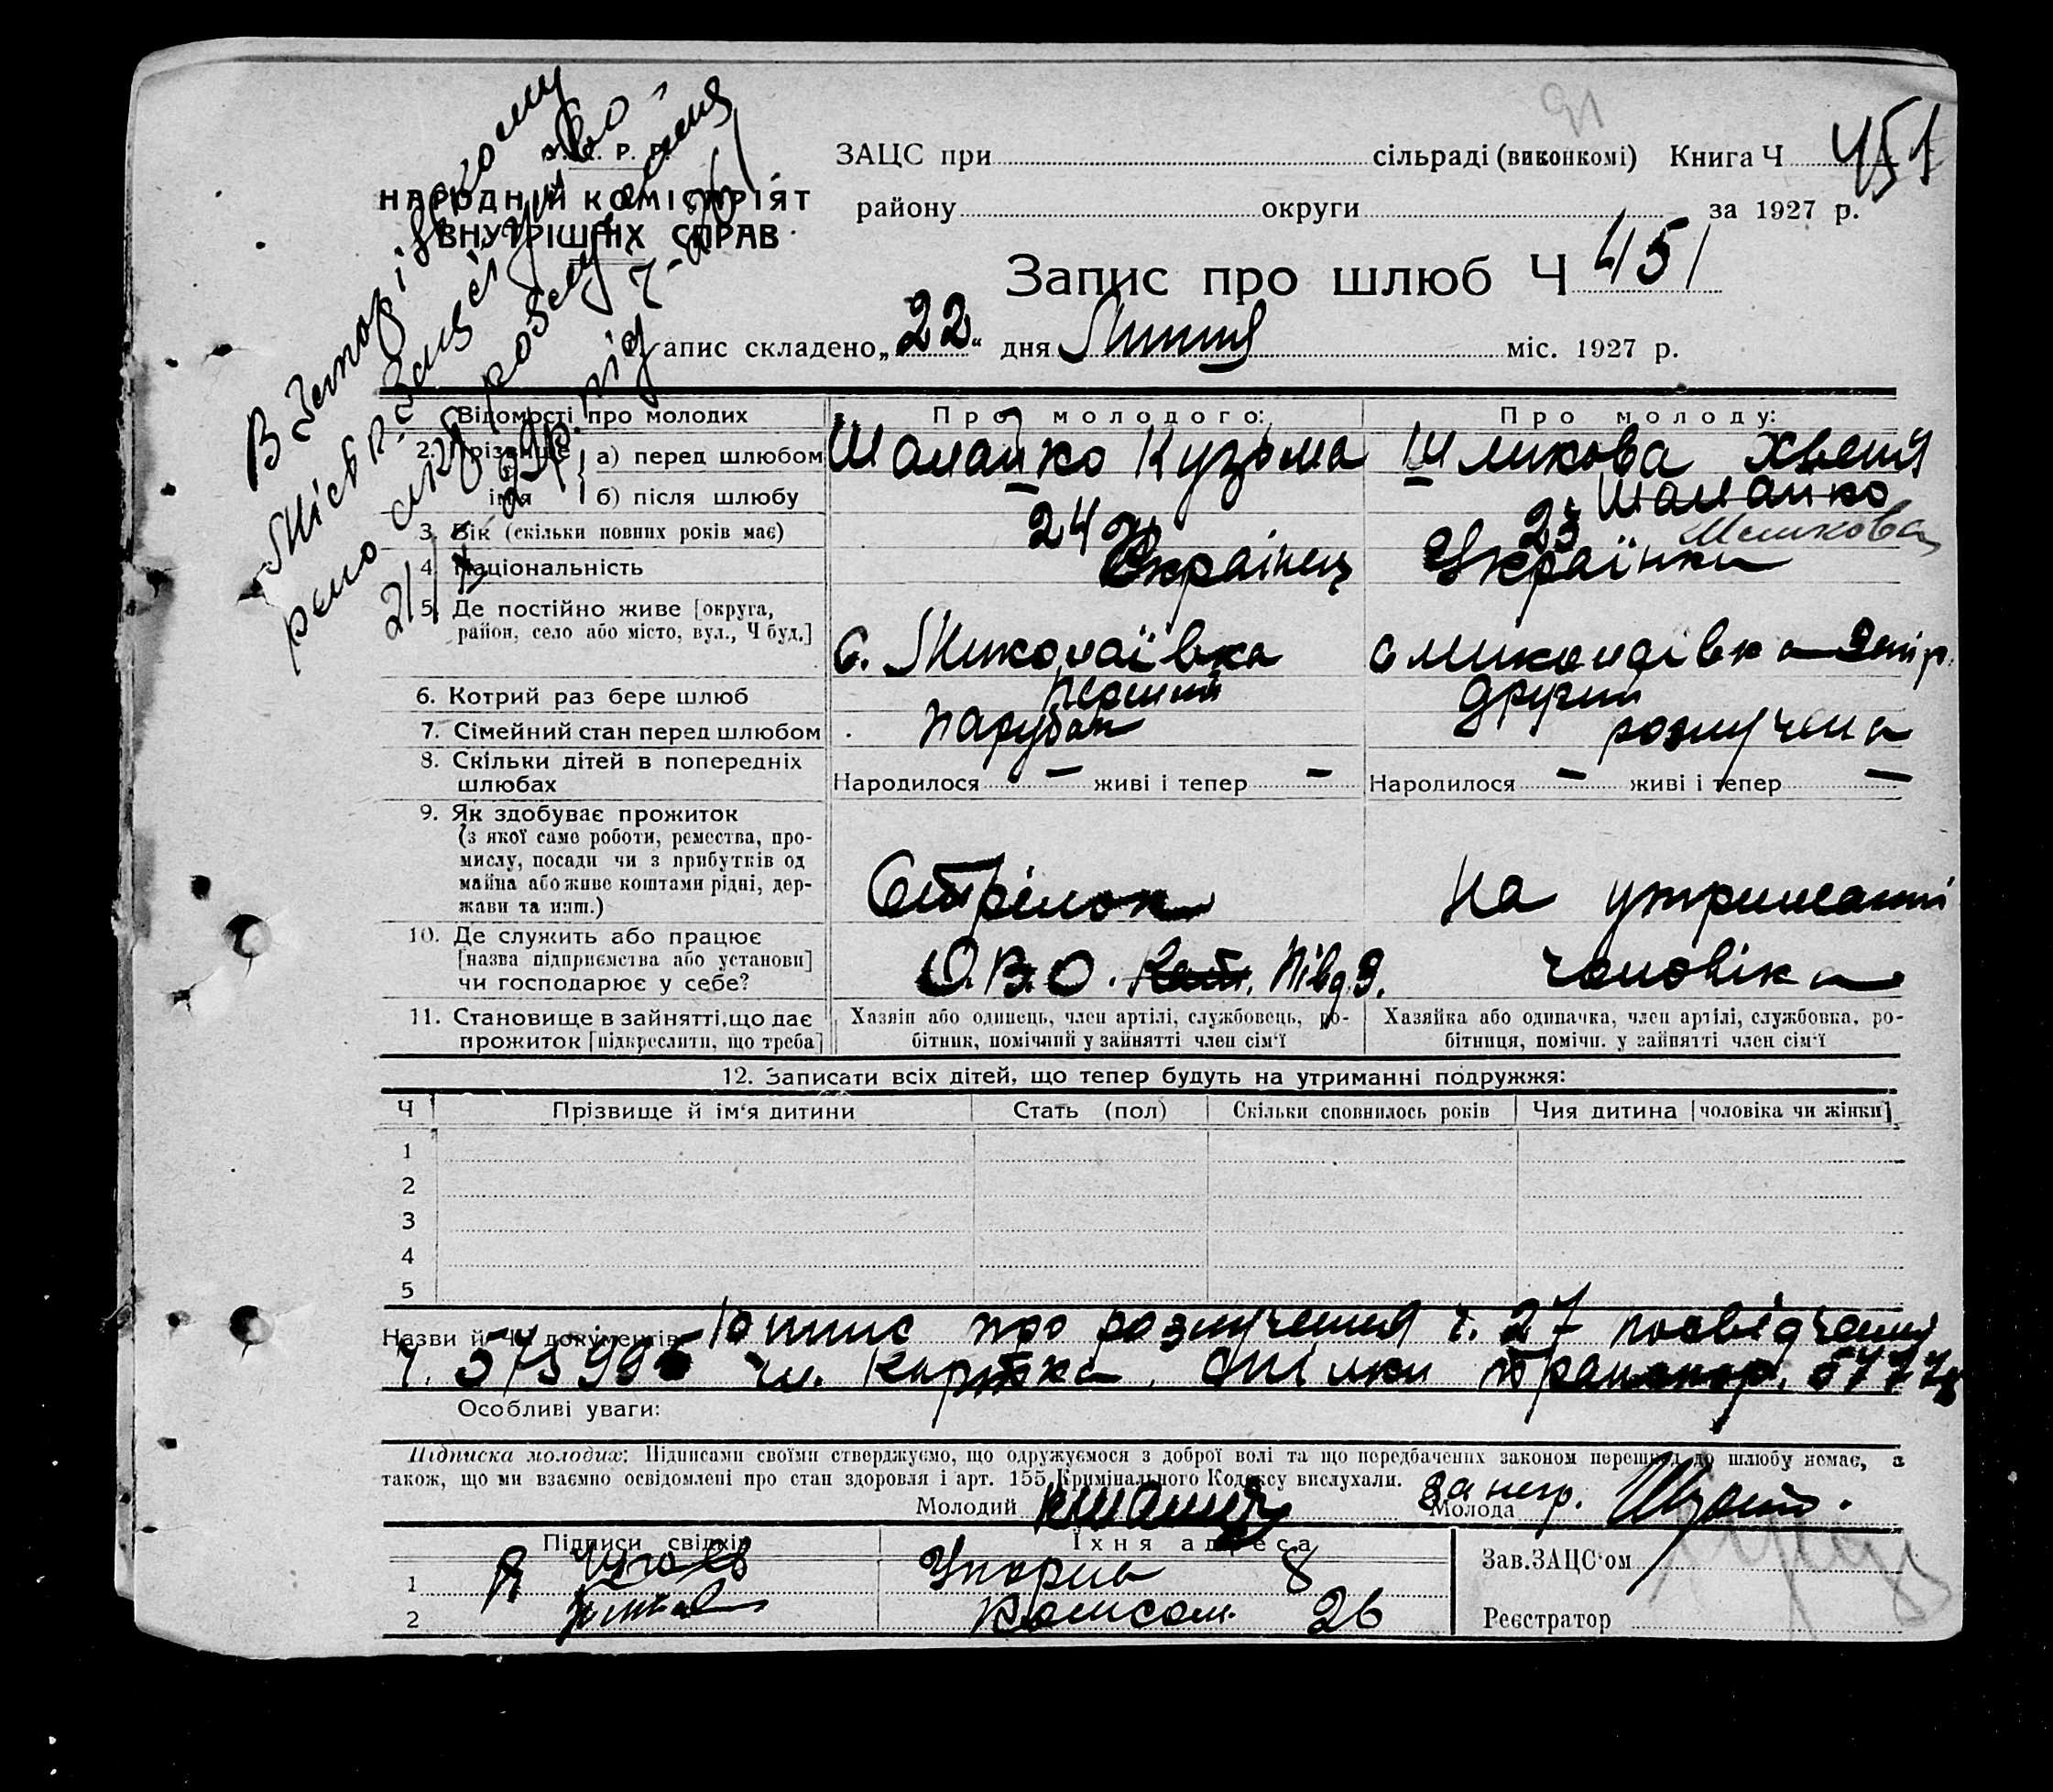 У. С. Р. Р.
НАРОДНІЙ КОМІСАРІЯТ
ВНУТРІШНІХ СПРАВ
ЗАЦС при сільраді (виконкомі) Книга Ч 451
району округи за 1927 р.
91
Запис про шлюб Ч 451
Запис складено „22“ дня Липня міс. 1927 р.
В Запорізькому
21/X 29р. під ч.
Відомості про молодих
Про молодого:
Про молоду:
2. Прізвище ім'я
а) перед шлюбом Шамайко Кузьма Шликова Хвеня
б) після шлюбу Шамайко
3. Вік (скільки повних років має) 24 23
4. Національність Украінець Українка
5. Де постійно живе [округа,
район, село або місто, вул., Ч буд.]
с. Миколаївка с Миколаівка
6. Котрий раз бере шлюб перший другий
7. Сімейний стан перед шлюбом парубок розлучена
8. Скільки дітей в попередніх
шлюбах
Народилося — живі і тепер — Народилося — живі і тепер —
9. Як здобуває прожиток
(з якої саме роботи, ремества, про-
мислу, посади чи з прибутків од
майна або живе коштами рідні, дер-
жави та инш.)
Стрілок на утриманні
10. Де служить або працює
[назва підприємства або установи]
чи господарює у себе?
О.В.О. Півд. З. чоловіка
11. Становище в зайнятті, що дає
прожиток [підкреслити, що треба]
Хазяін або одинець, член артілі, службовець, ро-
бітник, помічний у зайнятті член сім'ї
Хазяйка або одиначка, член артілі, службовка, ро-
бітниця, помічн. у зайнятті член сім'ї
12. Записати всіх дітей, що тепер будуть на утриманні подружжя:
Ч Прізвище й ім'я дитини Стать (пол) Скільки сповнилось років Чия дитина [чоловіка чи жінки]
1
2
3
4
5
Назви й Ч.Ч. документів про розлучення ч. 27 посвідчення
ч. 575996 чл. картка спілки транспор.
Особливі уваги:
Підписка молодих: Підписами своїми стверджуємо, що одружуємося з доброї волі та що передбачених законом перешкод до шлюбу немає, а
також, що ми взаємно освідомлені про стан здоровля і арт. 155 Кримінального Кодексу вислухали.
Молодий за негр. Молода
Підписи свідків Їхня адреса
1 8
2 Комсом. 26
Зав. ЗАЦС'ом
Реєстратор